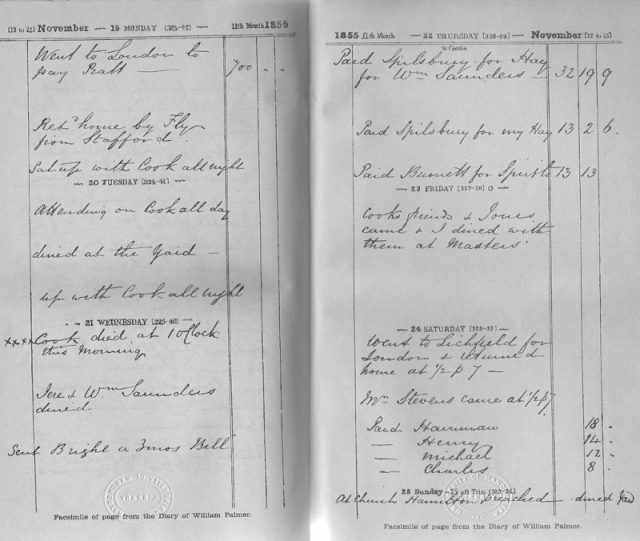 [13 to 21] November — 19 MONDAY [323-42] — 11th Month 1855
Went to London to
pay Pratt — 700 " "
Retd home by Fly
from Stafford.
Sat up with Cook all night
— 20 TUESDAY [324-41] —
Attending on Cook all day
dined at the Yard —
up with Cook all night
— 21 WEDNESDAY [325-40] —
xxxx Cook died at 1 oClock
this Morning
Jere & Wm Saunders
dined
Sent Bright a 3mos Bill
Facsimile of page from the Diary of William Palmer.
1855 11th Month — 22 THURSDAY — November [22 to 25]
St Cecilia
Paid Spilsbury for Hay
for Wm Saunders — 32 19 9
Paid Spilsbury for my Hay 13 2 6.
Paid Burnett for Spirits 13 13
— 23 FRIDAY —
Cooks friends & Jones
came & I dined with
them at Masters'
— 24 SATURDAY —
Went to Lichfield for
London & returned
home at ½ p 7 —
Mrs Stevens came at ½ p 7
Paid 18 "
— Henry 14 "
— Michael 12 "
— Charles 8 "
25 Sunday — aft Trin
At Church Hamilton Preached - dined Yard
Facsimile of page from the Diary of William Palmer.